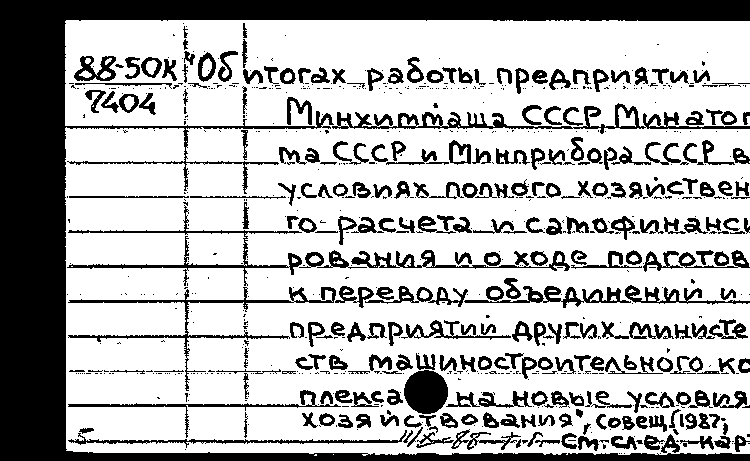 88-50К "Об итогах работы предприятий
7404
Минхиммаша СССР, Минатом
та СССР и Минприбора СССР в
условиях полного хозяйствен
го расчета и самофинанси
рования и о ходе подготов
к переводу объединений и
предприятий других министе
ств машиностроительного ко
плекса на новые условия
хозяйствования", совещ. (1987;
5 см. след. кар